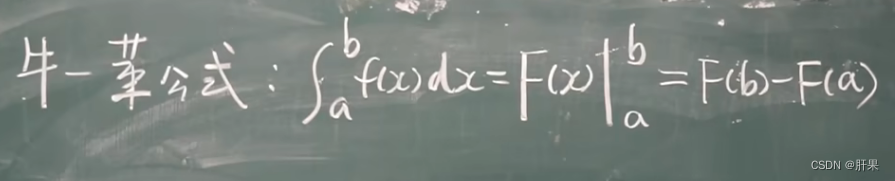 牛-莱公式：∫_a^b f(x)dx=F(x)|_a^b=F(b)-F(a)
CSDN @肝果